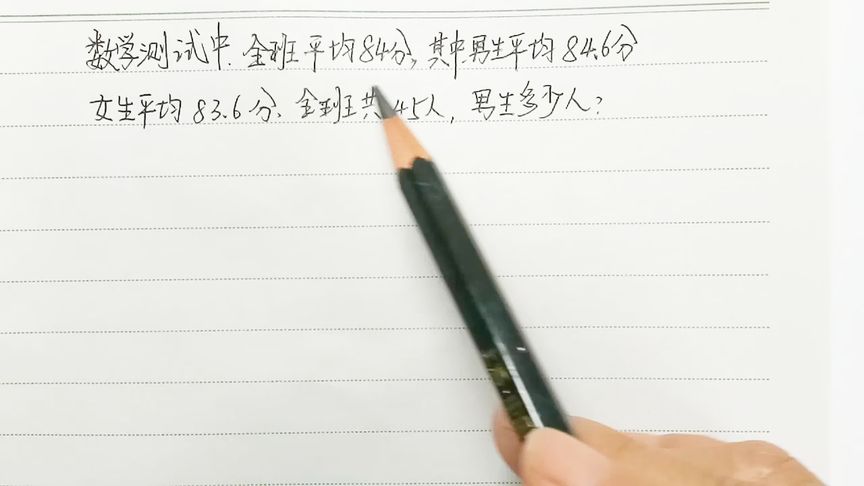 数学测试中.全班平均84分,其中男生平均84.6分
女生平均83.6分、全班共45人,男生多少人?